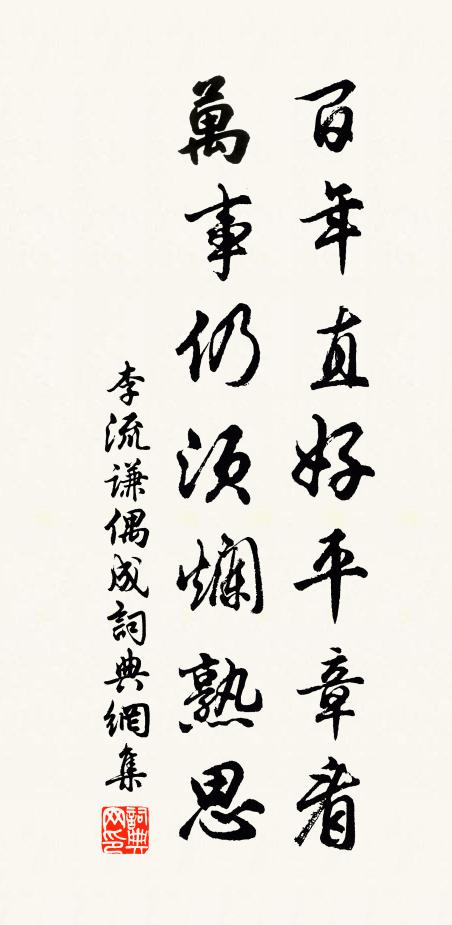 百年直好平章看
萬事仍須爛熟思
李流謙偶成詞典網集
詞典网印